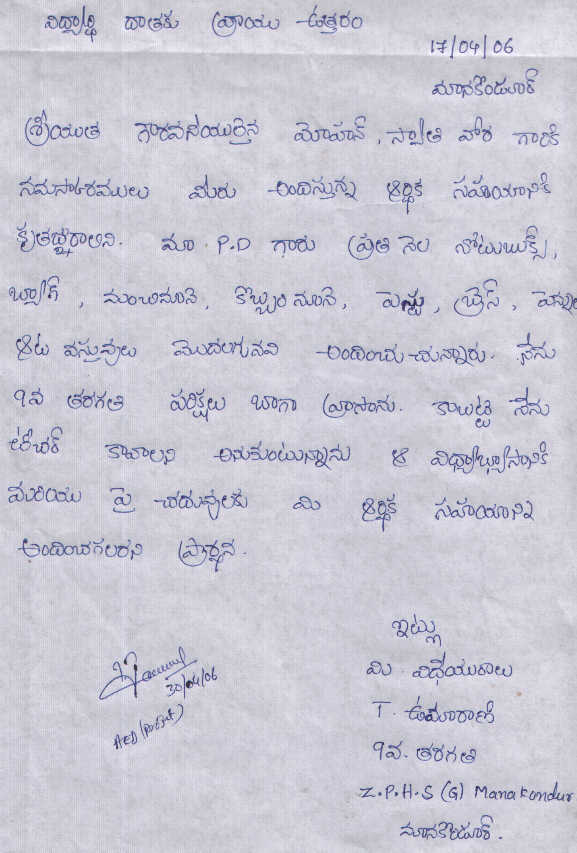 విద్యార్థి దాతకు వ్రాయు ఉత్తరం
17/04/06
మానకొండూర్
శ్రీయుత గౌరవనీయులైన మోహన్, స్వాతి వార గారికి
నమసారములు మీరు అందిస్తున్న ఆర్థిక సహాయానికి
కృతజ్ఞురాలిని. మా P.D గారు ప్రతి నెల నోటుబుక్స్,
బ్యాగ్, మంచినూనె, కొబ్బరి నూనె, పేస్టు, బ్రెస్, పెన్నులు
ఆట వస్తువులు మొదలగునవి అందించు చున్నారు. నేను
9వ తరగతి పరిక్షలు బాగా వ్రాసాను. కాబట్టి నేను
టీచర్ కావాలని అనుకుంటున్నాను ఆ విద్యాభ్యాసానికి
మరియు పై చదువులకు మీ ఆర్థిక సహాయాన్ని
అందించగలరని ప్రార్థన.
ఇట్లు
మీ విధేయురాలు
T. ఉమారాణి
9వ. తరగతి
Z.P.H.S (G) Manakondur
మానకొండూర్.
30/04/06